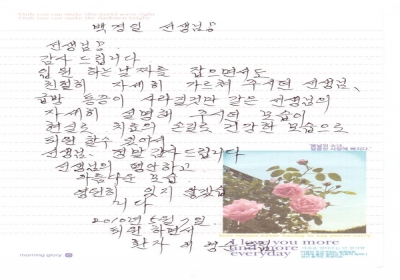 백경일 선생님!
선생님!
감사 드립니다
입원 하는 날짜를 잡으면서도
친절히 자세히 가르쳐 주시던 선생님,
금방 통증이 사라질것만 같은 선생님의
자세히 설명해 주시던 모습이
현실로 치료의 손길로 건강한 모습으로
퇴원 할수 있어서
선생님, 정말 감사드립니다
선생님의 편안하고
아름다운 모습
영원히 잊지 않겠습
니다
2010년 5월 7일
퇴원 하면서
환자
you more
and more
everyday
morning glory